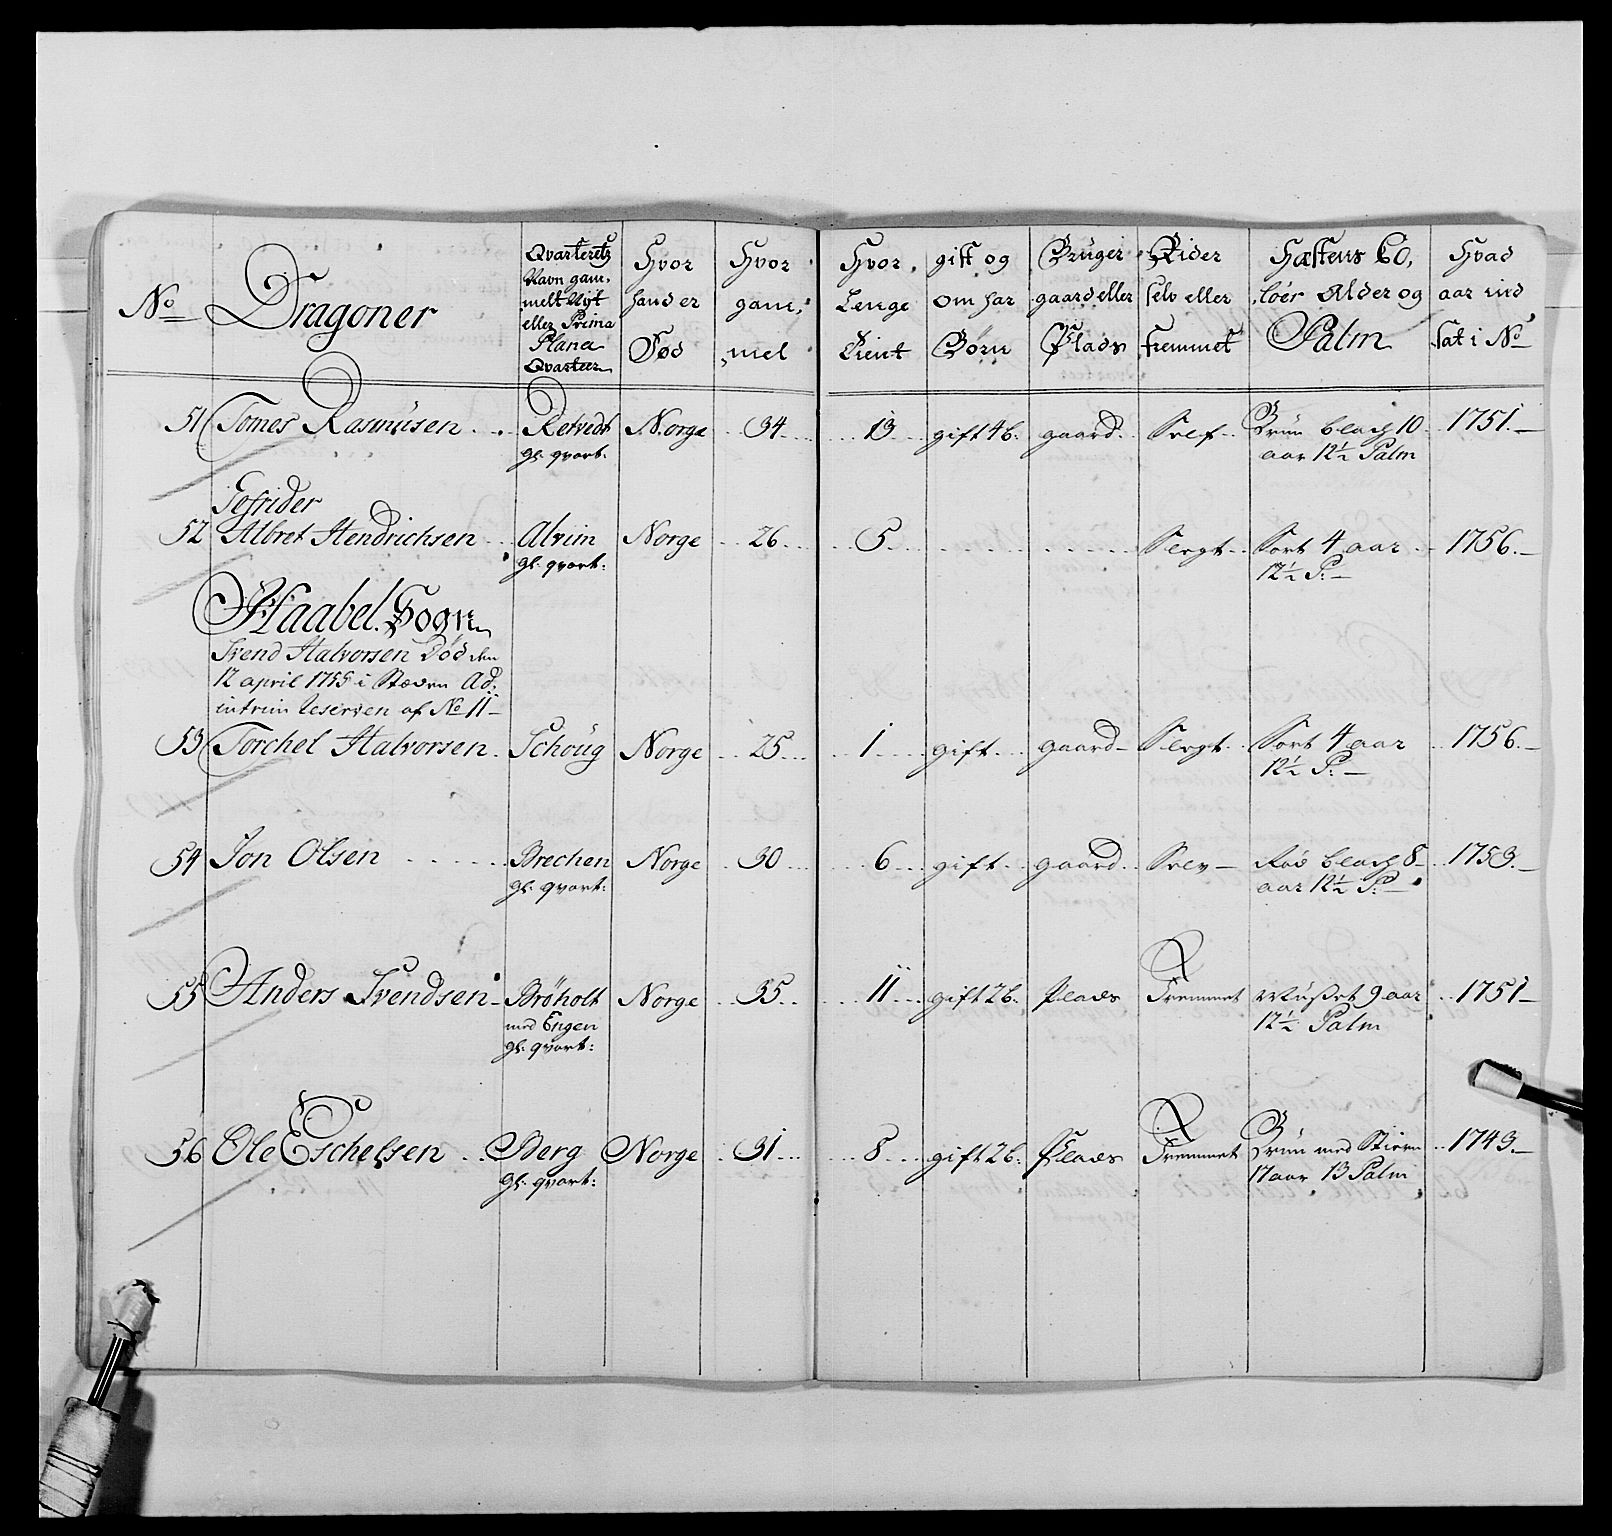 No
Dragoner
Qvarterets
Navn gam,
melt Nyt
eller Prima
Plana
Qvarteer
Hvor
hand er
Fød
Hvor
gam,
mel
Hvor
Lenge
Tient
gift og
om har
Børn
Bruger
gaard eller
Plads
Rider
selv eller
Fremmet
Hæstens Co,
løer Alder og
Palm
Hvad
aar ind
sat i No
51 Tomes Rasmusen Retvedt Norge 34 13 gift 4 b: gaard Self Brun 10 1751
gl: qvart: aar 12½ Palm
Gefrider
52 Albret Hendrichsen Alvim Norge 26 5 Sergt Sort 4 aar 1756
gl: qvart: 12½ P:
Haabel Sogn
Svend Halvorsen Død den
12 april 1755 i Ad,
intrim Reserven af No 11
53 Torchel Halvorsen Schoug Norge 25 1 gift gaard Sergt Sort 4 aar 1756
12½ P:
54 Jon Olsen Brechen Norge 30 6 gift gaard Selv 8 1753
gl: qvart: aar 12½ P:
55 Anders Svendsen Brøholt Norge 35 11 gift 2 b: Plads Fremmet Mußet 9 aar 1751
med Engen 12½ Palm
gl: qvart:
56 Ole Eschelsen Berg Norge 31 8 gift 2 b: Plads Fremmet Brun med Stiern 1743
gl: qvart: 17 aar 13 Palm